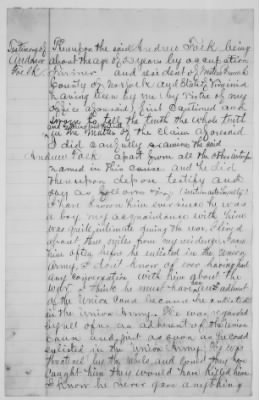 Testimony of Whereupon the said Andrew Fock being
Andrew about the age of years by occupation
Fock Farmer and resident of
County of Norfolk and State of Virginia
having been by me by virtue of my
office aforesaid first Cautioned and
sworn to tell the truth the whole truth
and nothing but the truth
in the Matter of the Claim aforesaid
I did carefully examine the said
Andrew Fock apart from all the other
named in this cause and he did
thereupon depose testify and
say as follows
I have known him ever since he was
a boy my acquaintance with him
was quite intimate during the war. I lived
about miles from his residence. I saw
him often before he enlisted in the Union
Army. I don't know of ever having had
any Conversation with him about the
war. I think he must have been an adherent
of the Union Cause because he enlisted
in the Union Army. He was regarded
by all of us an adherent of the Union
Cause and just as soon as he
enlisted in the Union Army he was
threatened by the rebels and could they have
caught him they would have killed him
I know he never gave anything